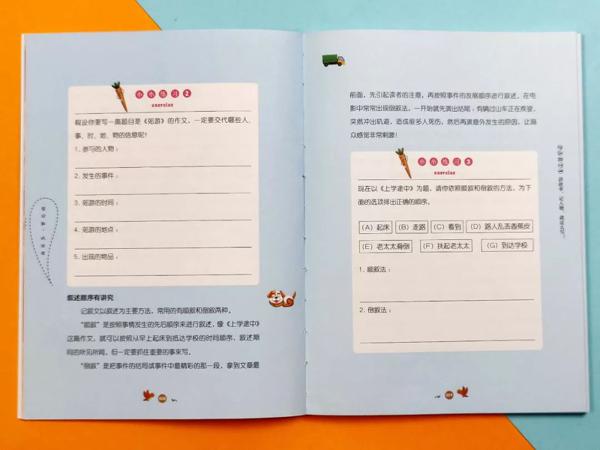 小小练习2
exercise
假设你要写一篇题目是《郊游》的作文，一定要交代哪些人、
事、时、地、物的信息呢？
1. 参与的人物：
2. 发生的事件：
3. 郊游的时间：
4. 郊游的地点：
5. 出现的物品：
叙述顺序有讲究
记叙文以叙述为主要方法，常用的有顺叙和倒叙两种。
“顺叙”是按照事情发生的先后顺序来进行叙述，像《上学途中》
这篇作文，就可以按照从早上起床到抵达学校的时间顺序，叙述期
间的所见所闻，但一定要抓住重要的事来写。
“倒叙”是把事件的结局或事件中最精彩的那一段，拿到文章最
前面，先引起读者的注意，再按照事件的发展顺序进行叙述。在电
影中常常出现倒叙法，一开始就先演出结尾：有辆过山车正在疾驶，
突然冲出轨道，造成很多人死伤，然后再演意外发生的原因，让观
众感觉非常刺激！
小小练习3
exercise
现在以《上学途中》为题，请你依照顺叙和倒叙的方法，为下
面的选项排出正确的顺序。
(A) 起床 (B) 走路 (C) 看到 (D) 路人乱丢香蕉皮
(E) 老太太滑倒 (F) 扶起老太太 (G) 到达学校
1. 顺叙法：
2. 倒叙法：